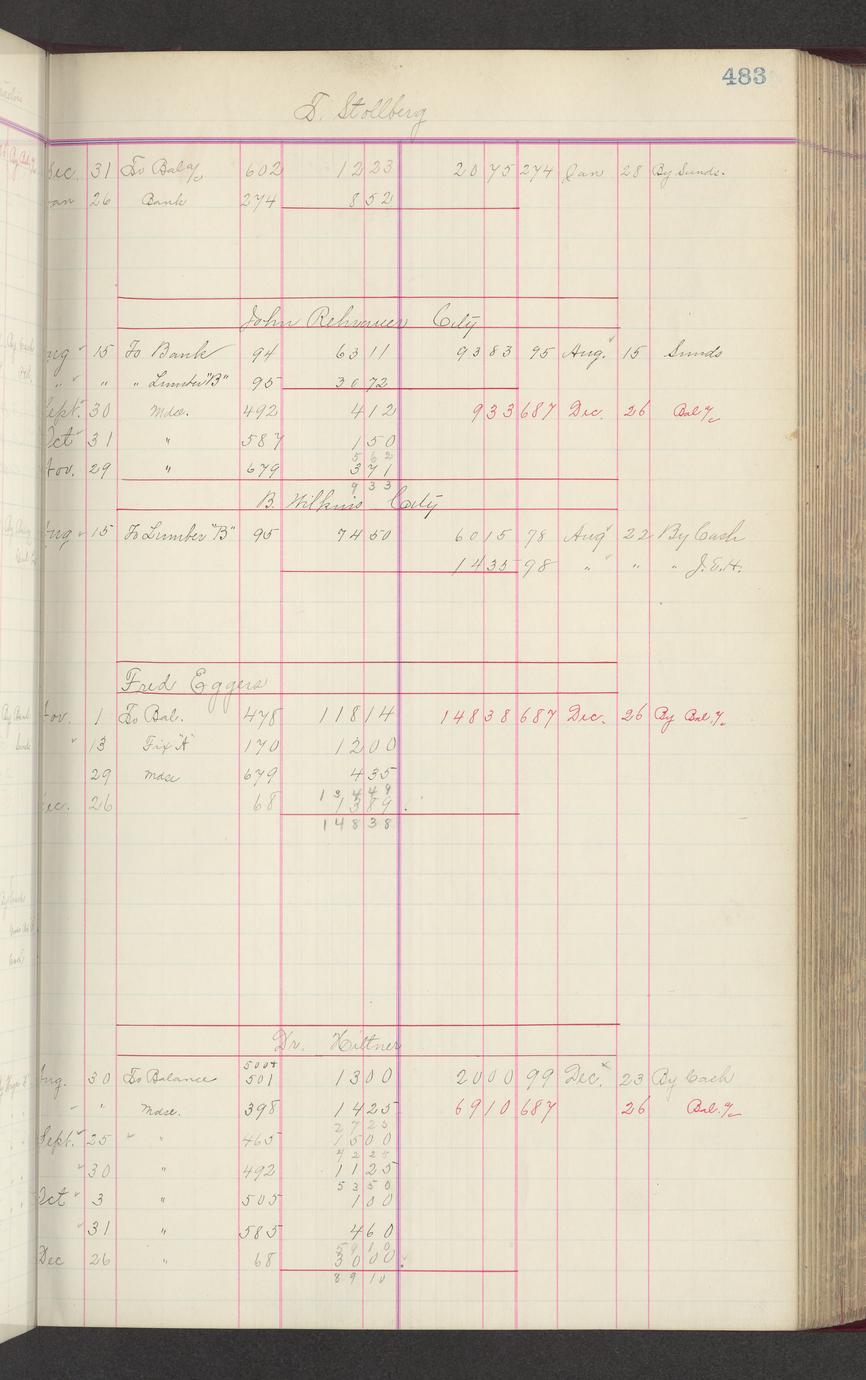 483
T. Stollberg
Dec. 31 To Bal 602 12 23 20 75 274 Jan 28 By Sunds.
Jan 26 Bank 274 8 52
John City
Aug 15 To Bank 94 63 11 93 83 95 Aug. 15 Sunds
" " " Lumber "B" 95 30 72
Sept. 30 Mdse. 492 4 12 9 33 687 Dec. 26 Bal
Oct 31 " 587 1 50
5 62
Nov. 29 " 679 3 71
9 33
B. Wilkins City
Aug 15 To Lumber "B" 95 74 50 60 15 78 Aug 22 By Cash
14 35 98 " " " J.E.H.
Fred Eggers
Nov. 1 To Bal. 478 118 14 148 38 687 Dec. 26 By Bal.
13 Fix "A" 170 12 00
29 Mdse 679 4 35
134 49
Dec. 26 68 13 89
148 38
Dr. Hiltner
500+
Aug. 30 To Balance 501 13 00 20 00 99 Dec. 23 By Cash
" " Mdse. 398 14 25 69 10 687 26 Bal.
27 25
Sept. 25 " " 465 15 00
42 25
30 " 492 11 25
53 50
Oct 3 " 505 1 00
31 " 585 4 60
59 10
Dec 26 " 68 30 00
89 10